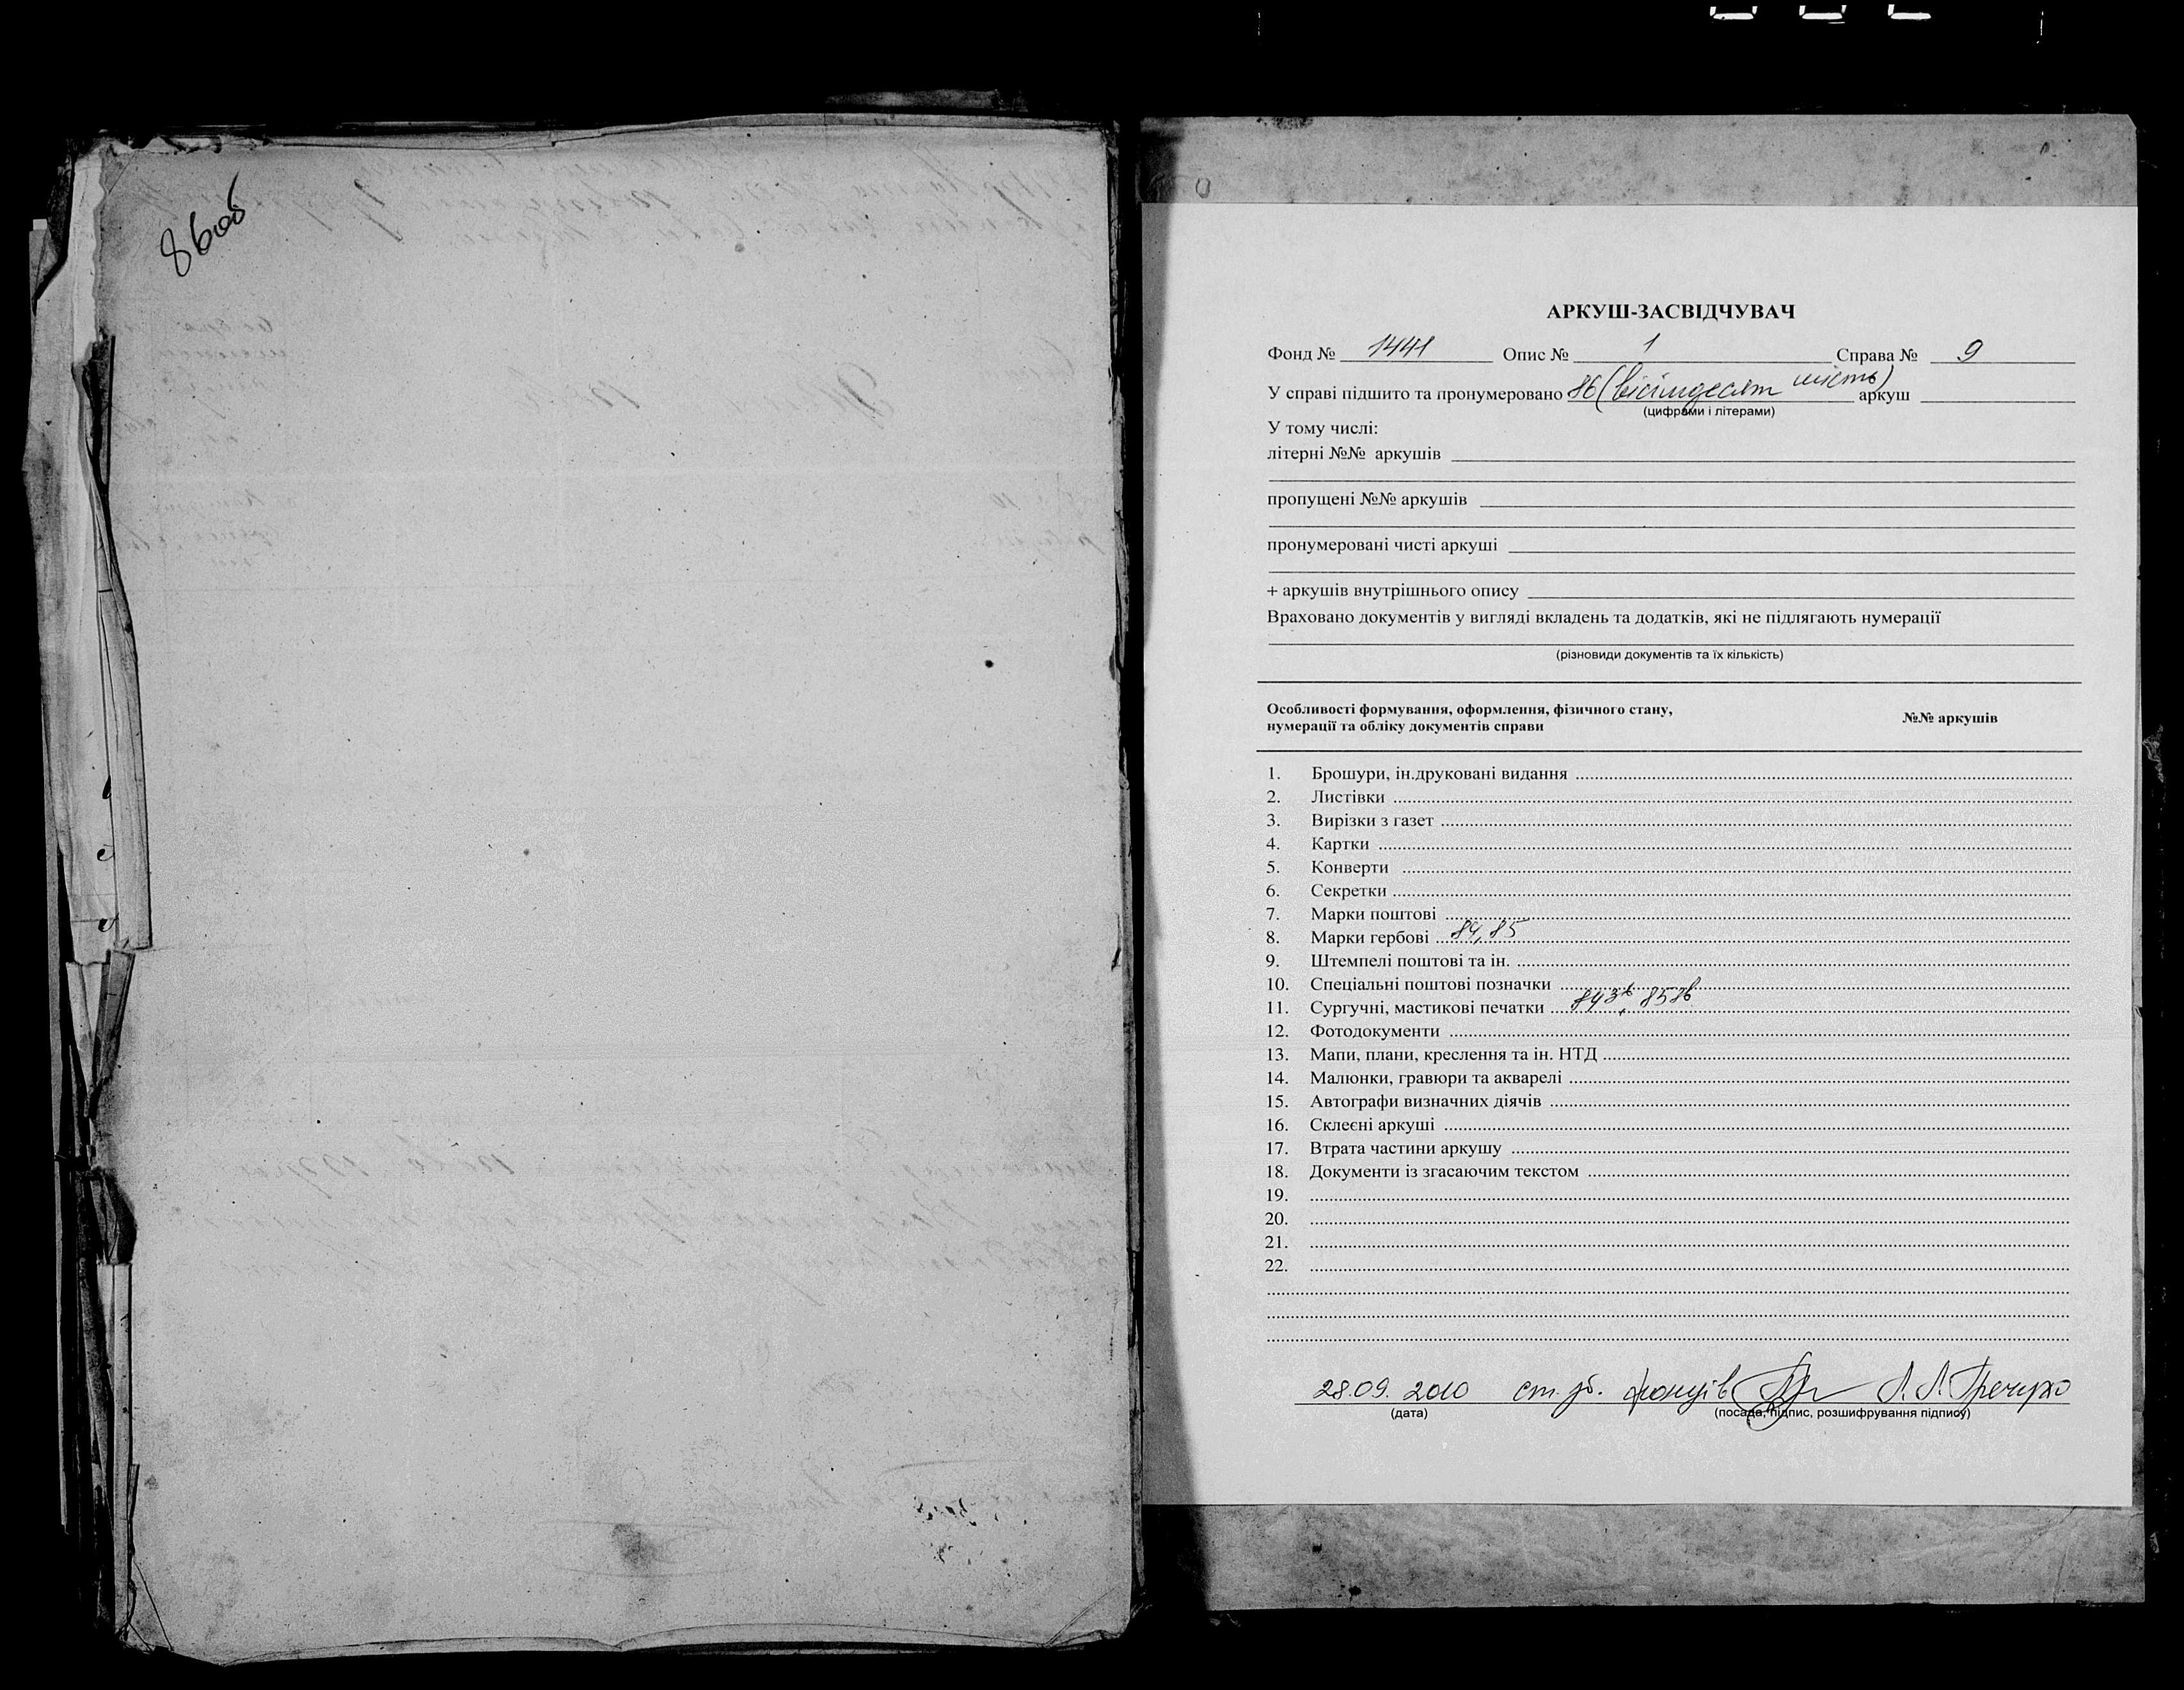 86об
АРКУШ-ЗАСВІДЧУВАЧ
Фонд № 1441 Опис № 1 Справа № 9
У справі підшито та пронумеровано 86 (вісімдесят шість) аркуш
(цифрами і літерами)
У тому числі:
літерні №№ аркушів
пропущені №№ аркушів
пронумеровані чисті аркуші
+ аркушів внутрішнього опису
Враховано документів у вигляді вкладень та додатків, які не підлягають нумерації
(різновиди документів та їх кількість)
Особливості формування, оформлення, фізичного стану,
нумерації та обліку документів справи №№ аркушів
1. Брошури, ін.друковані видання
2. Листівки
3. Вирізки з газет
4. Картки
5. Конверти
6. Секретки
7. Марки поштові
8. Марки гербові 84, 85
9. Штемпелі поштові та ін.
10. Спеціальні поштові позначки
11. Сургучні, мастикові печатки
12. Фотодокументи
13. Мапи, плани, креслення та ін. НТД
14. Малюнки, гравюри та акварелі
15. Автографи визначних діячів
16. Склеєні аркуші
17. Втрата частини аркушу
18. Документи із згасаючим текстом
19.
20.
21.
22.
28.09. 2010 ст. зб. фондів Л.Л.Гречухо
(дата) (посада, підпис, розшифрування підпису)